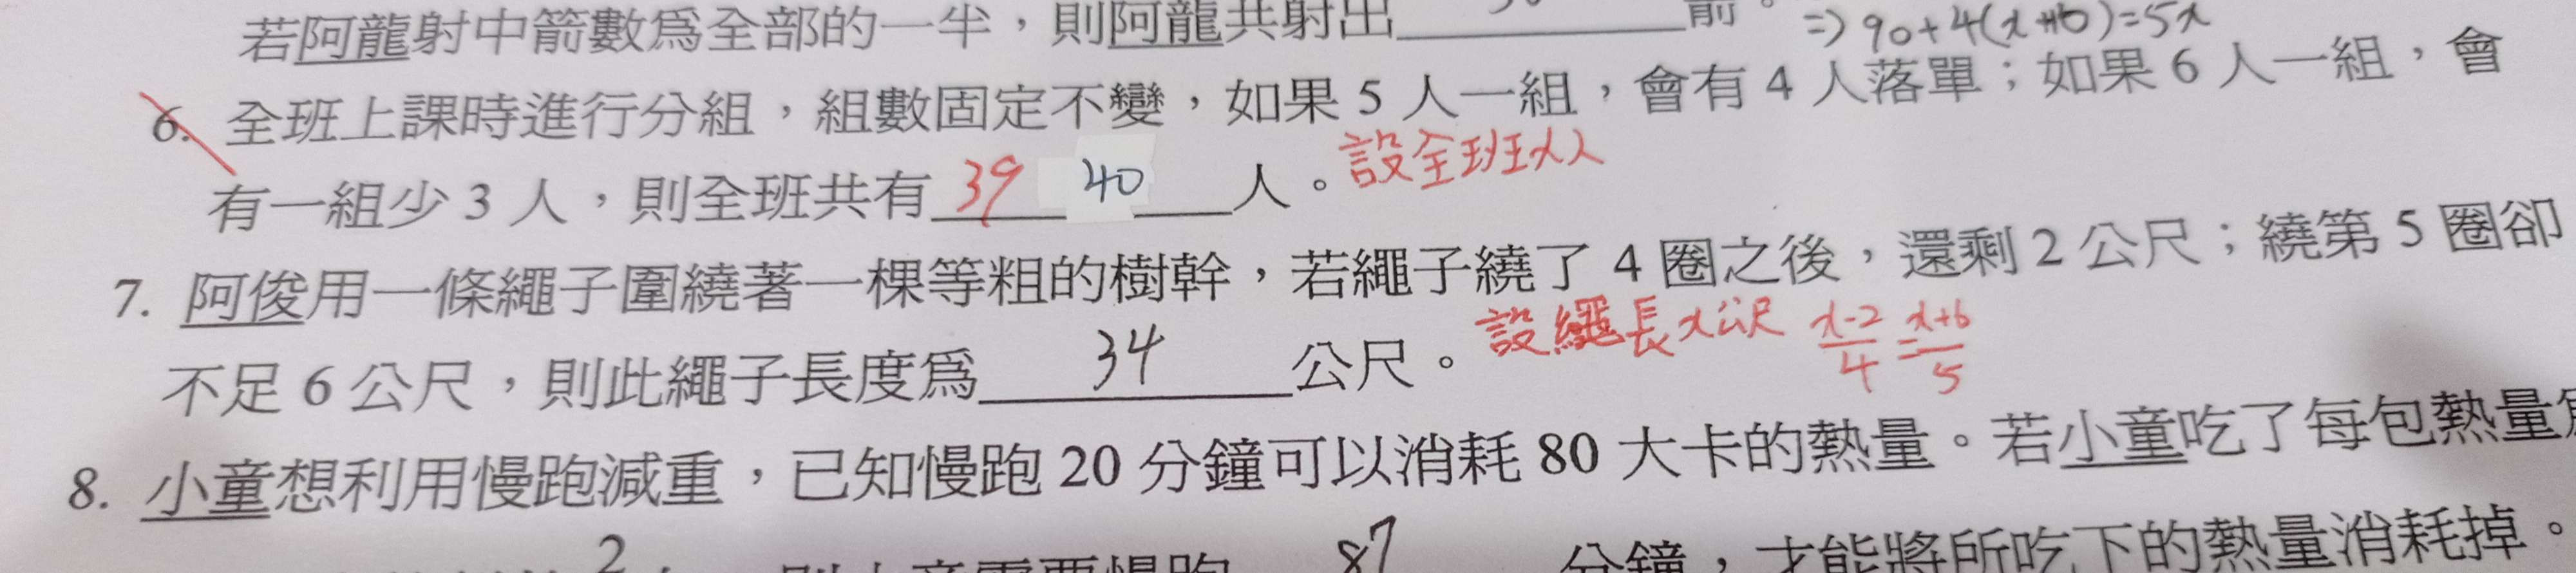 若阿龍射中箭數為全部的一半，則阿龍共射出______箭。
=> 90+4(x+10)=5x
6. 全班上課時進行分組，組數固定不變，如果 5 人一組，會有 4 人落單；如果 6 人一組，會
有一組少 3 人，則全班共有 39 40 人。設全班x人
7. 阿俊用一條繩子圍繞著一棵等粗的樹幹，若繩子繞了 4 圈之後，還剩 2 公尺；繞第 5 圈卻
不足 6 公尺，則此繩子長度為 34 公尺。設繩長x公尺 x-2/4=x+6/5
8. 小童想利用慢跑減重，已知慢跑 20 分鐘可以消耗 80 大卡的熱量。若小童吃了每包熱量為
2 則小童需要慢跑 87 分鐘，才能將所吃下的熱量消耗掉。